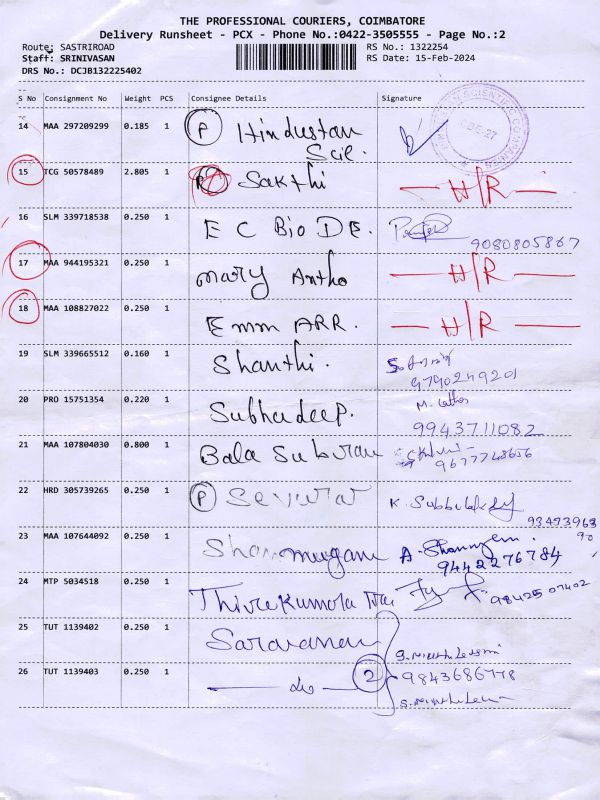 THE PROFESSIONAL COURIERS, COIMBATORE
Delivery Runsheet - PCX - Phone No.:0422-3505555 - Page No.:2
Route: SASTRIROAD
RS No.: 1322254
Staff: SRINIVASAN
RS Date: 15-Feb-2024
DRS No.: DCJB132225402
S No Consignment No Weight PCS Consignee Details Signature
14 MAA 297209299 0.185 1 P Hindustan
Scie.
15 TCG 50578489 2.805 1 Sakthi H/R
16 SLM 339718538 0.250 1 E C Bio DE.
9080805867
17 MAA 944195321 0.250 1 Mary Antho H/R
18 MAA 108827022 0.250 1 Emm ARR. H/R
19 SLM 339665512 0.160 1 Shanthi.
9790249201
20 PRO 15751354 0.220 1 Subhadeep.
9943711082
21 MAA 107804030 0.800 1 Bala Subram
9677748656
22 HRD 305739265 0.250 1 P
K. Subbulakshmy
93473968
90
23 MAA 107644092 0.250 1 Shanmugam A. Shanmugam
9442276784
24 MTP 5034518 0.250 1 Thirukumara
9842507402
25 TUT 1139402 0.250 1 Saravanan
26 TUT 1139403 0.250 1 do 2 9843686778